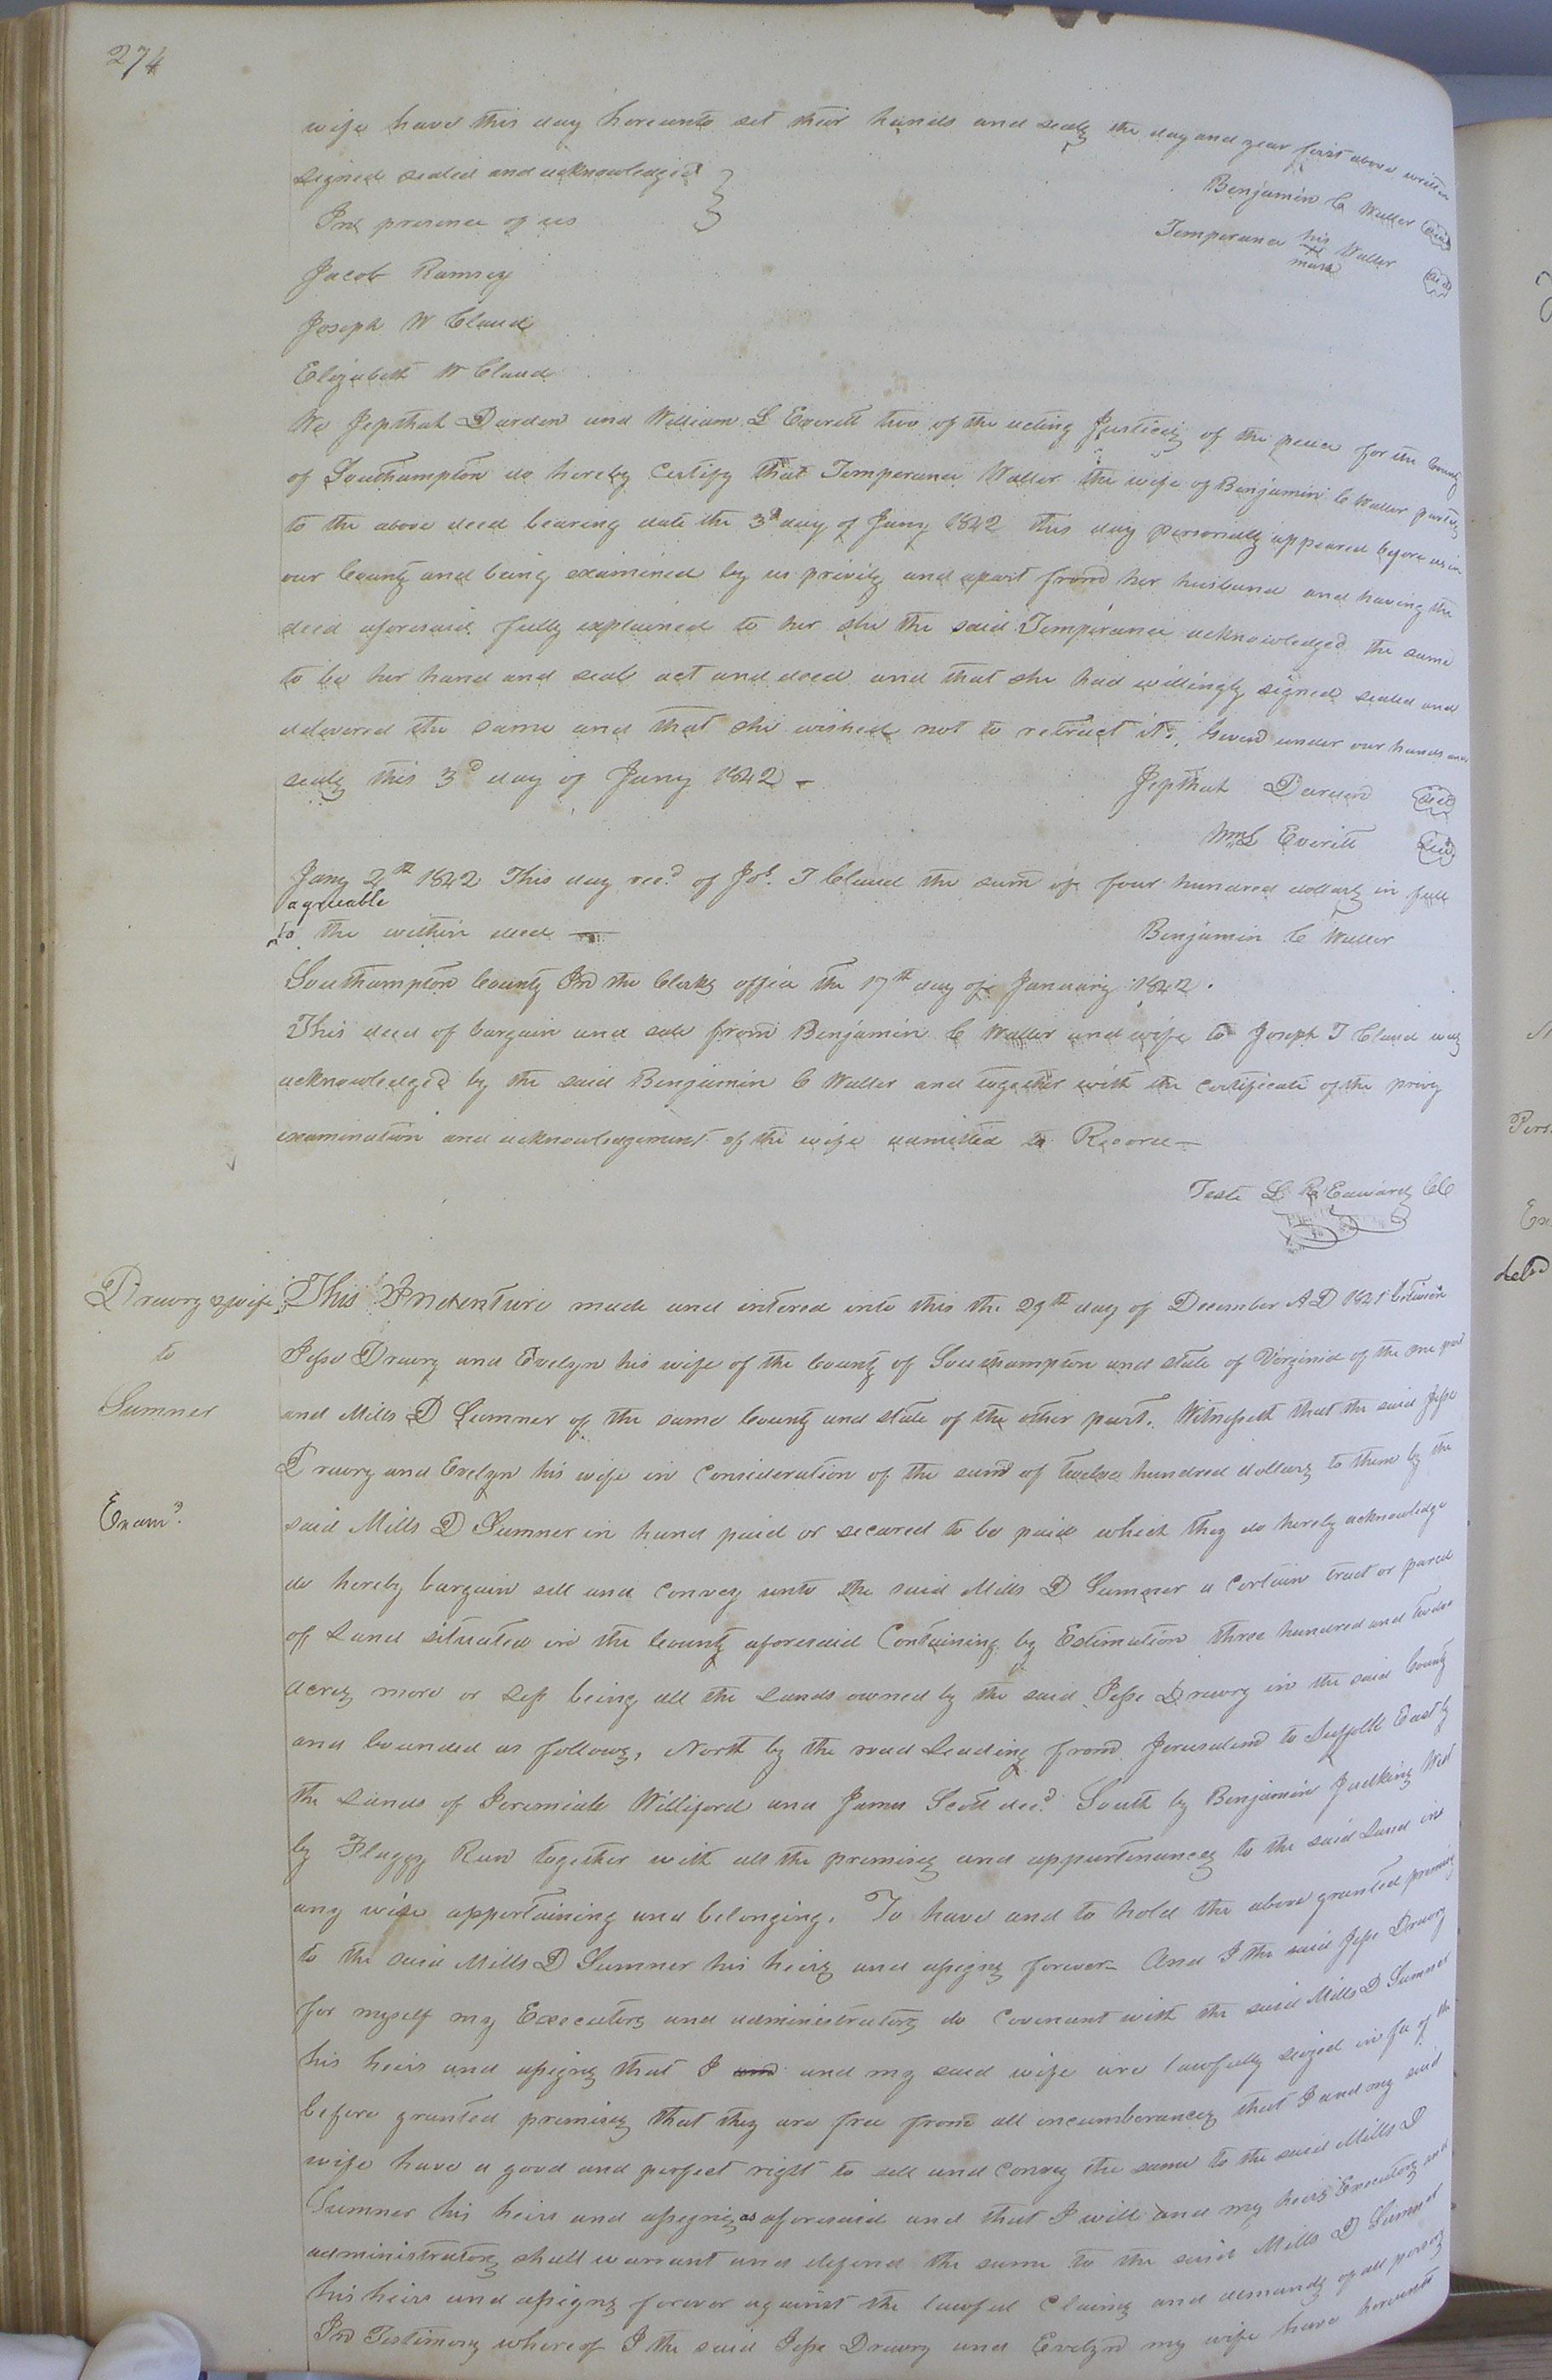 274
wife have this day hereunto set their hands and seals the day and year first above written
Signed sealed and acknowledged }
In presence of us }
Benjamin C Waller Seal
Temperance his Waller Seal
mark
Jacob Ramsey
Joseph W Claud
Elizabeth W Claud
We Jepthah Darden and William L Everett two of the acting Justices of the peace for the County
of Southampton do hereby Certify that Temperance Waller the wife of Benjamin C Waller parties
to the above deed bearing date the 3d day of Jany 1842 this day personally appeared before us in
our County and being examined by us privily and apart from her husband and having the
deed aforesaid fully explained to her she the said Temperance acknowledged the same
to be her hand and seale act and deed and that she had willingly signed sealed and
delevered the same and that she wished not to retract it. Given under our hands and
seals this 3d day of Jany 1842 -
Jepthah Darden Seal
Wm L Everitt Seal
Jany 2th 1842 This day recd of Jos. T Claud the sum of four hundred dollars in full
agreeable
to the within deed
Benjamin C Waller
Southampton County In the Clerks office the 17th day of January 1842.
This deed of bargain and sale from Benjamin C Waller and wife to Joseph T Claud was
acknowledged by the said Benjamin C Waller and together with the certificate of the privy
examination and acknowledgement of the wife admitted to Record -
Teste L R Edwards CC
Drewry & wife
to
Sumner
Examd.
This Indenture made and entered into this the 29th day of December AD 1841 between
Jesse Drewry and Evelyn his wife of the County of Southampton and state of Virginia of the one part
and Mills D Sumner of the same County and state of the other part. Witnesseth that the said Jesse
Drewry and Evelyn his wife in Consideration of the sum of twelve hundred dollars to them by the
said Mills D Sumner in hand paid or secured to be paid which they do hereby acknowledge
do hereby bargain sell and convey unto the said Mills D Sumner a certain tract or parcel
of Land situated in the County aforesaid Containing by Estimation three hundred and twelve
acres more or less being all the Lands owned by the said Jesse Drewry in the said County
and bounded as follows, North by the road Leading from Jerusalem to Suffolk East by
the Lands of Jeremiah Williford and James Scott decd. South by Benjamin Judkins West
by Flaggy Run together with all the premises and appurtenances to the said Land in
any wise appertaining and belonging. To have and to hold the above granted premises
to the said Mills D Sumner his heirs and assigns forever - And I the said Jesse Drewry
for myself my Executors and administrators do Covenant with the said Mills D Sumner
his heirs and assigns that I and and my said wife are lawfully seized in fee of the
before granted premises that they are free from all incumberances that I and my said
wife have a good and perfect right to sell and convey the same to the said Mills D
Sumner his heirs and assigns as aforesaid and that I will and my heirs Executors and
administrators shall warrant and defend the same to the said Mills D Sumner
his heirs and assigns forever against the lawful claims and demands of all persons
In Testimony whereof I the said Jesse Drewry and Evelyn my wife have hereunto
Pers
Ex
deld